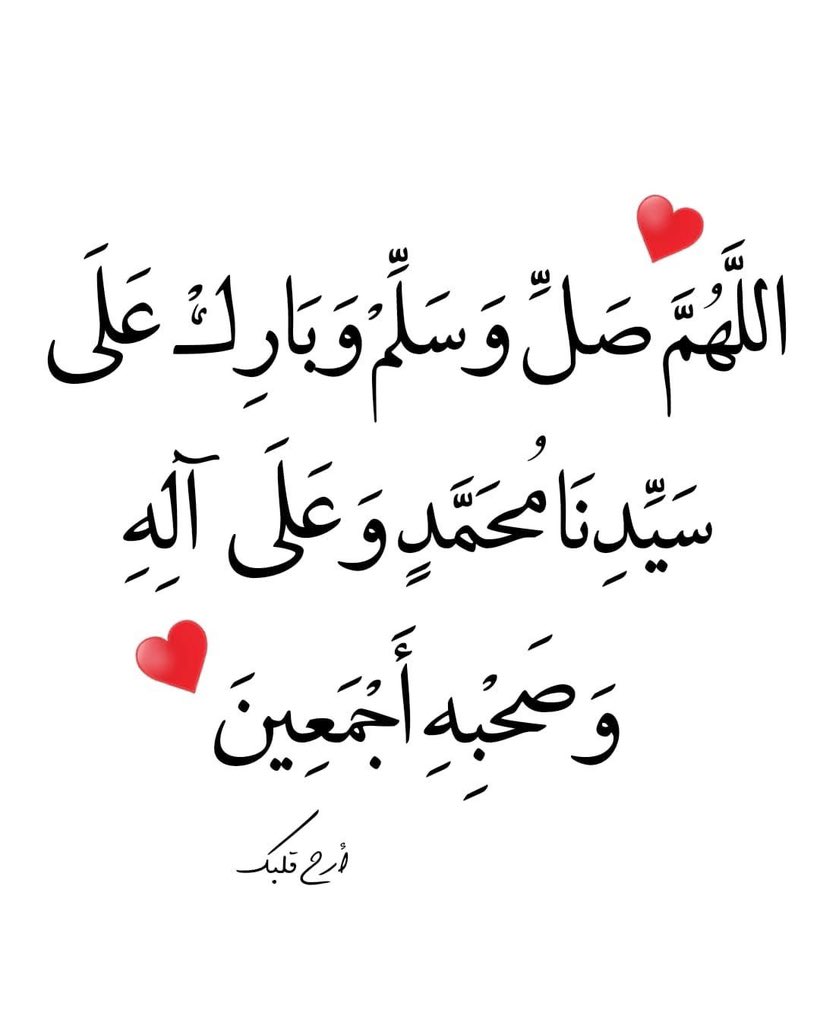 اللَّهُمَّ صَلِّ وَسَلِّمْ وَبَارِكْ عَلَى
سَيِّدِنَا مُحَمَّدٍ وَعَلَى آلِهِ
وَصَحْبِهِ أَجْمَعِينَ
أرح قلبك